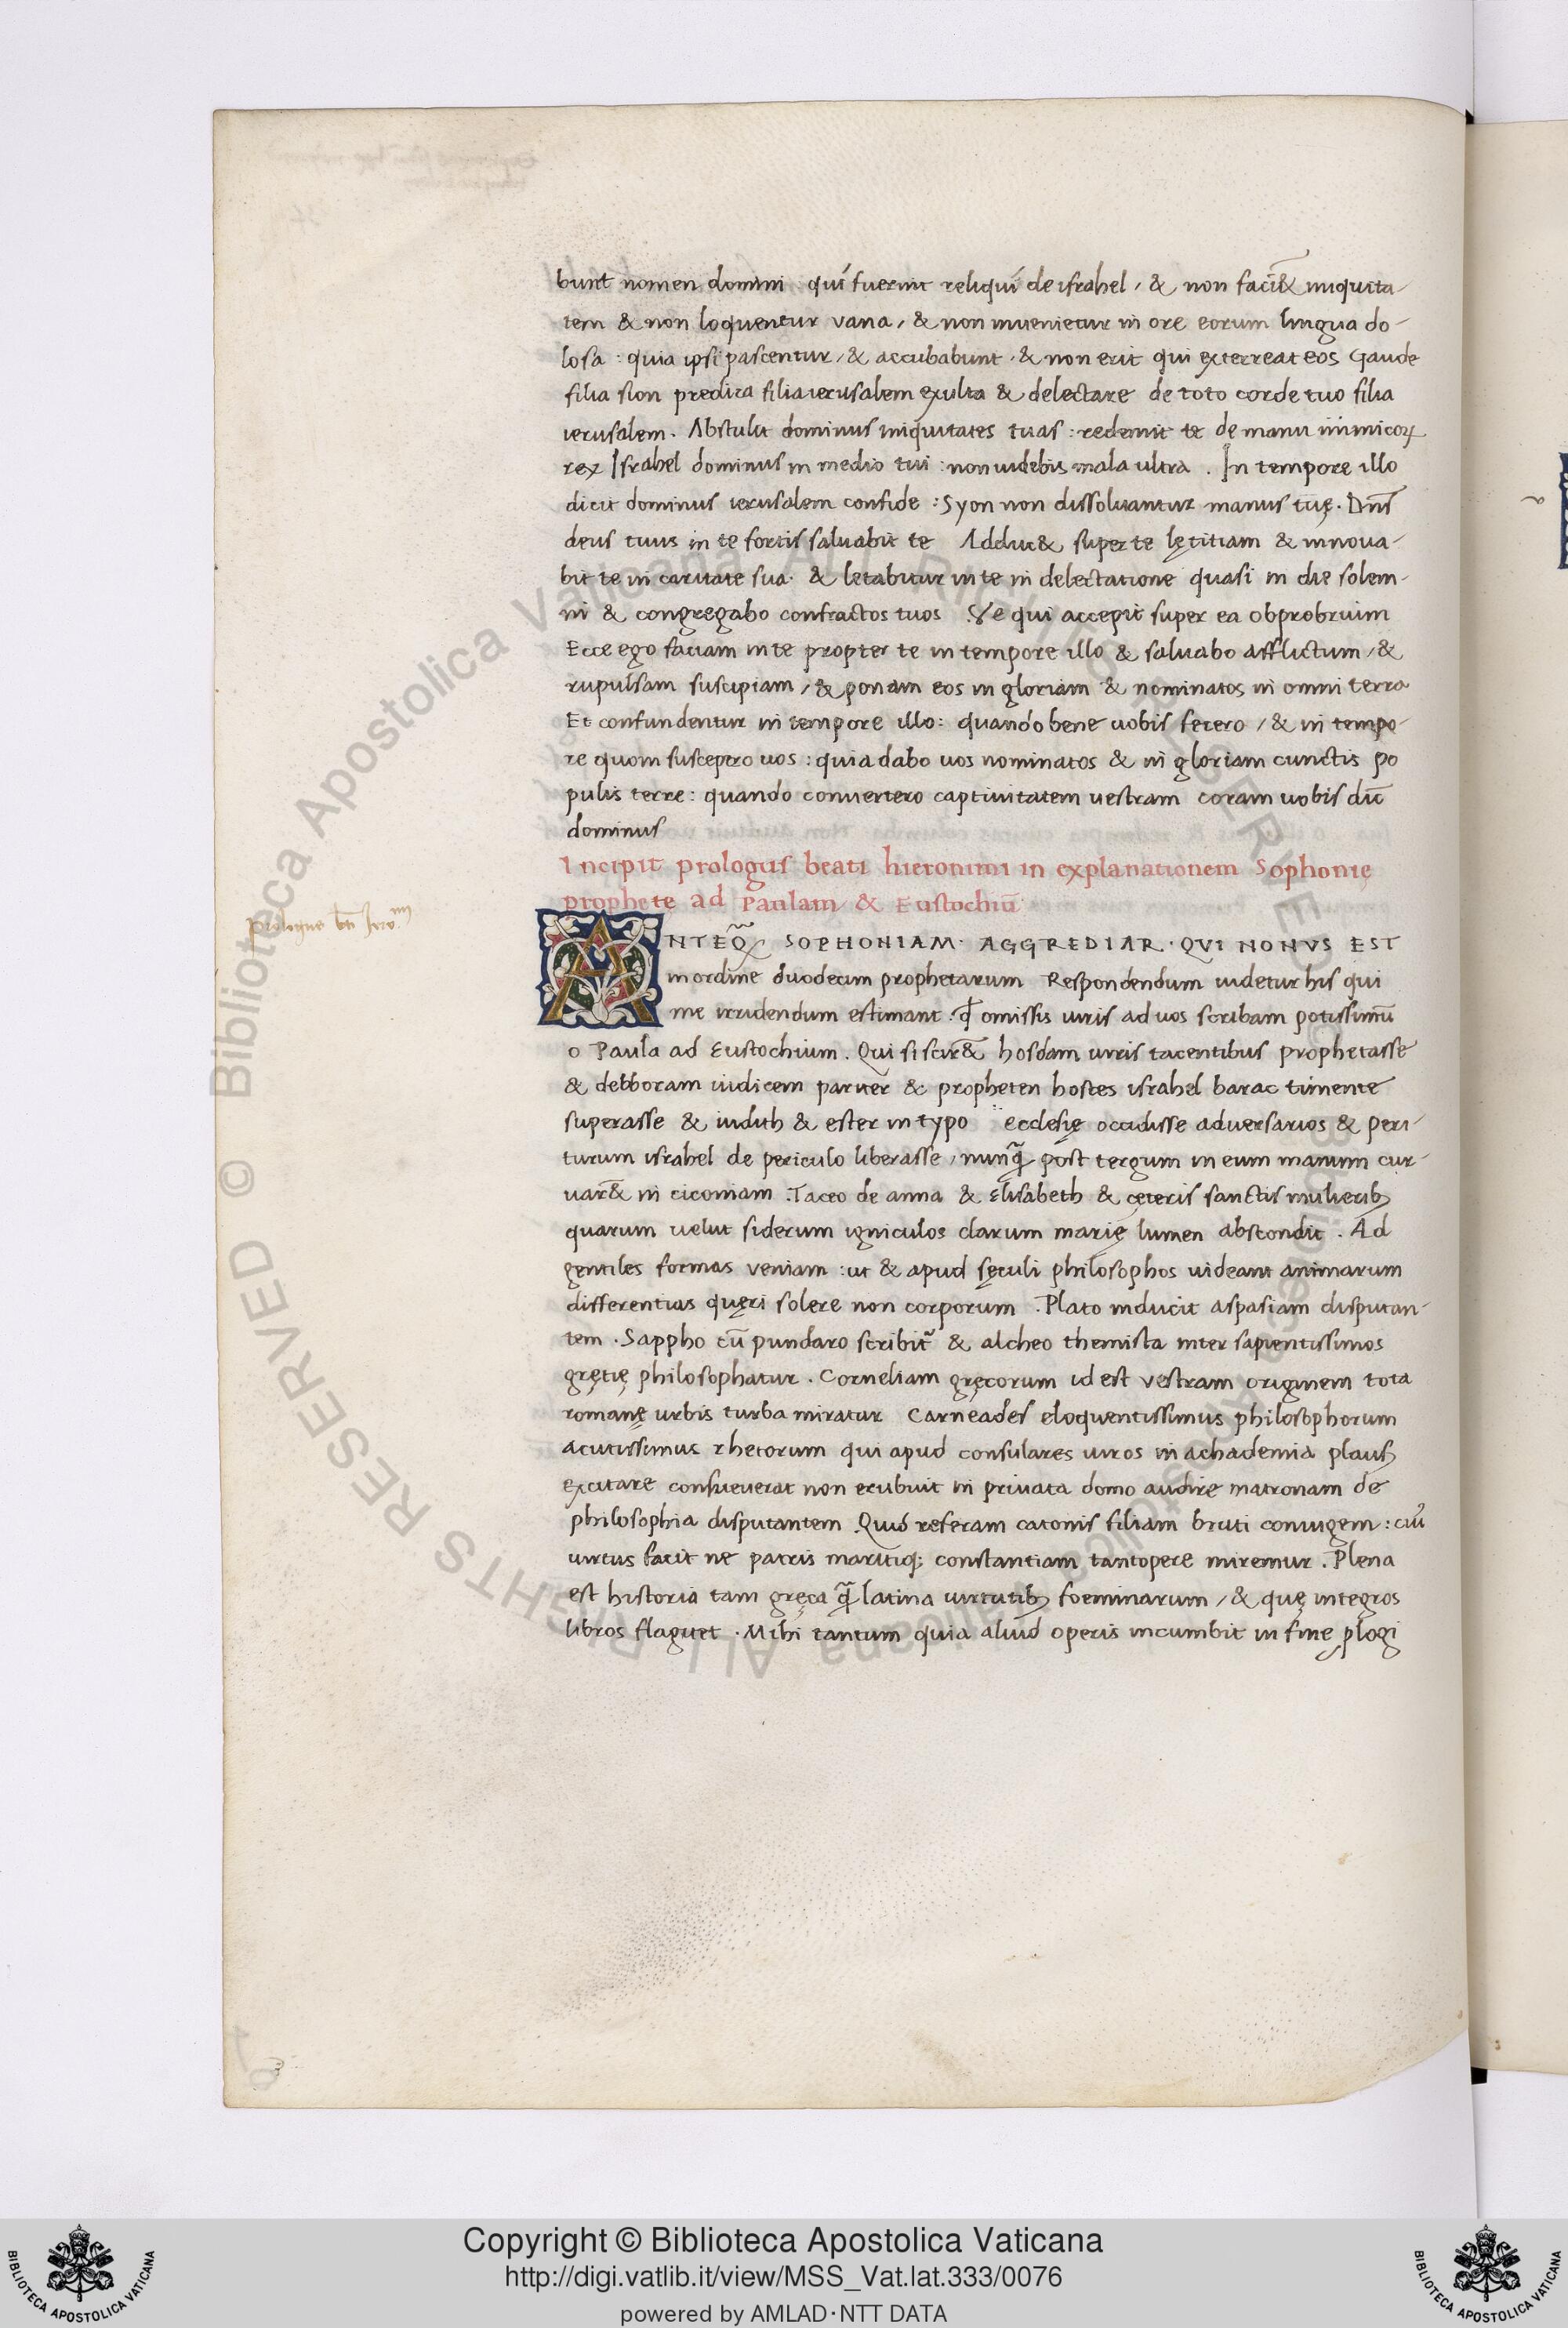 bunt nomen domini : qui fuerint reliqui de israhel, & non faci&̃ iniquita-
tem & non loquentur vana, & non inuenietur in ore eorum lingua do-
losa : quia ipsi pascentur, & accubabunt · & non erit qui exterreat eos Gaude
filia sion predica filia ierusalem exulta & delectare de toto corde tuo filia
ierusalem. Abstulit dominus iniquitates tuas : redemit te de manu inimicoꝝ
rex Israhel dominus in medio tui : non uidebis mala ultra . In tempore illo
dicit dominus ierusalem confide : Syon non dissoluantur manus tuę. Dn̄s
deus tuus in te fortis saluabit te Adduc& super te lętitiam & innoua-
bit te in caritate sua · & letabitur in te in delectatione quasi in die solem-
ni & congregabo contractos tuos Ve qui accepit super ea obprobrium
Ecce ego faciam in te propter te in tempore illo & saluabo afflictum, &
rupulsam suscipiam, & ponam eos in gloriam & nominatos in omni terra
Et confundentur in tempore illo: quando bene uobis fecero, & in tempo-
re quom suscepero uos : quia dabo uos nominatos & in gloriam cunctis po
pulis terre: quando convertero captiuitatem uestram coram uobis dic̄
dominus
Incipit prologus beati hieronimi in explanationem Sophonię
prophete ad Paulam & Eustochiū
Prologus bti Iero.mi
ANTEQ̃ SOPHONIAM · AGGREDIAR · QVI NONVS EST
in ordine duodecim prophetarum Respondendum uidetur his qui
me irridendum estimant · ꝙ omissis uiris ad uos scribam potissimū
o Paula ad Eustochium. Qui si scir&̃ hosdam uiris tacentibus prophetasse
& debboram iudicem pariter & propheten hostes israhel barac timente
superasse & iudith & ester in typo ecclesię occidisse adversarios & peri-
turum israhel de periculo liberasse, nunꝗ̃ post tergum in eum manum cur-
uar&̃ in ciconiam . Taceo de anna & Elisabeth & cęteris sanctis mulieribꝫ
quarum uelut siderum igniculos clarum marię lumen abscondit . Ad
gentiles formas veniam : ut & apud sęculi philosophos uideant animarum
differentias quęri solere non corporum . Plato inducit aspasiam disputan-
tem . Sappho cū pundaro scribit᷑ & alcheo themista inter sapientissimos
gretię philosophatur . Corneliam gręcorum id est vestram originem tota
romanę urbis turba miratur Carneades eloquentissimus philosophorum
acutissimus rhetorum qui apud consulares uiros in achademia plausꝫ
excitare consueuerat non erubuit in priuata domo audire matronam de
philosophia disputantem Quid referam catonis filiam bruti coniugem : cuiꝰ
uirtus facit ne patris maritiq; constantiam tantopere miremur . Plena
est historia tam gręca ꝗ̃ latina uirtutibꝫ foeminarum, & quę integros
libros flagitet . Mihi tantum quia aliud operis incumbit in fine ꝓlogi
Copyright © Biblioteca Apostolica Vaticana
http://digi.vatlib.it/view/MSS_Vat.lat.333/0076
powered by AMLAD·NTT DATA
BIBLIOTECA APOSTOLICA VATICANA
BIBLIOTECA APOSTOLICA VATICANA
© Biblioteca Apostolica Vaticana ALL RIGHTS RESERVED